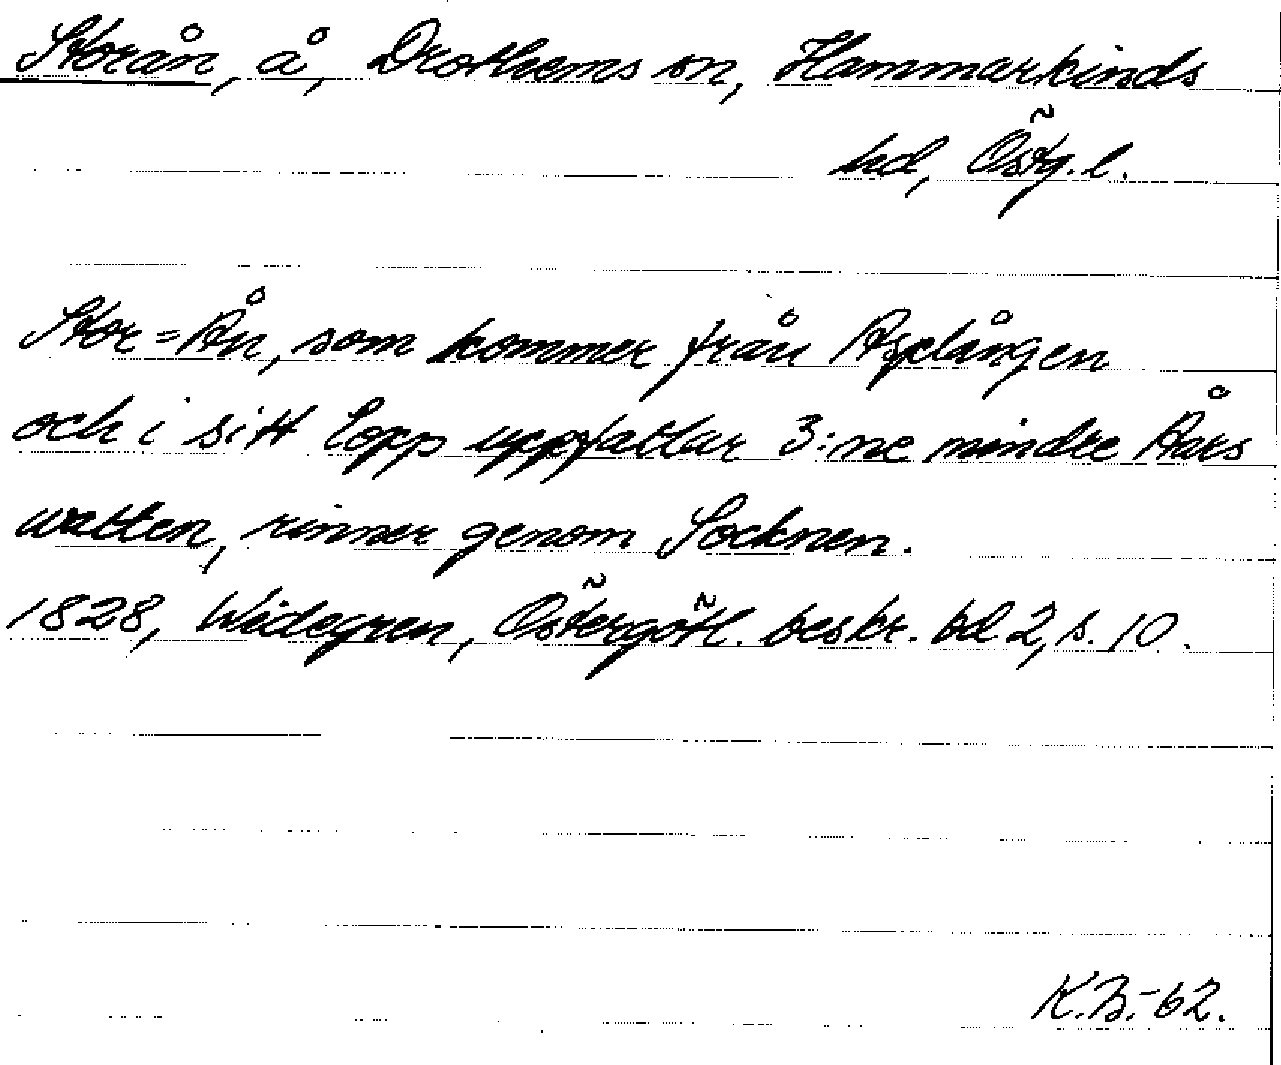 Storån, å, Drothems sn, Hammarkinds
hd, Östg. l.
Stor=Ån, som kommer från Asplången
och i sitt Lopp uppfattar 3:ne mindre Åars
watten, rinner genom Socknen.
1828, Widegren, Östergötl. beskr. bd 2, s. 10.
K.B.-62.